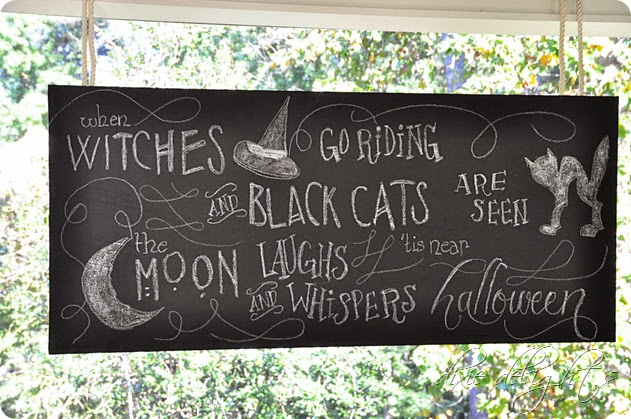 when
WITCHES GO RIDING
AND BLACK CATS ARE SEEN
the MOON LAUGHS 'tis near
AND WHISPERS halloween
dixie delights